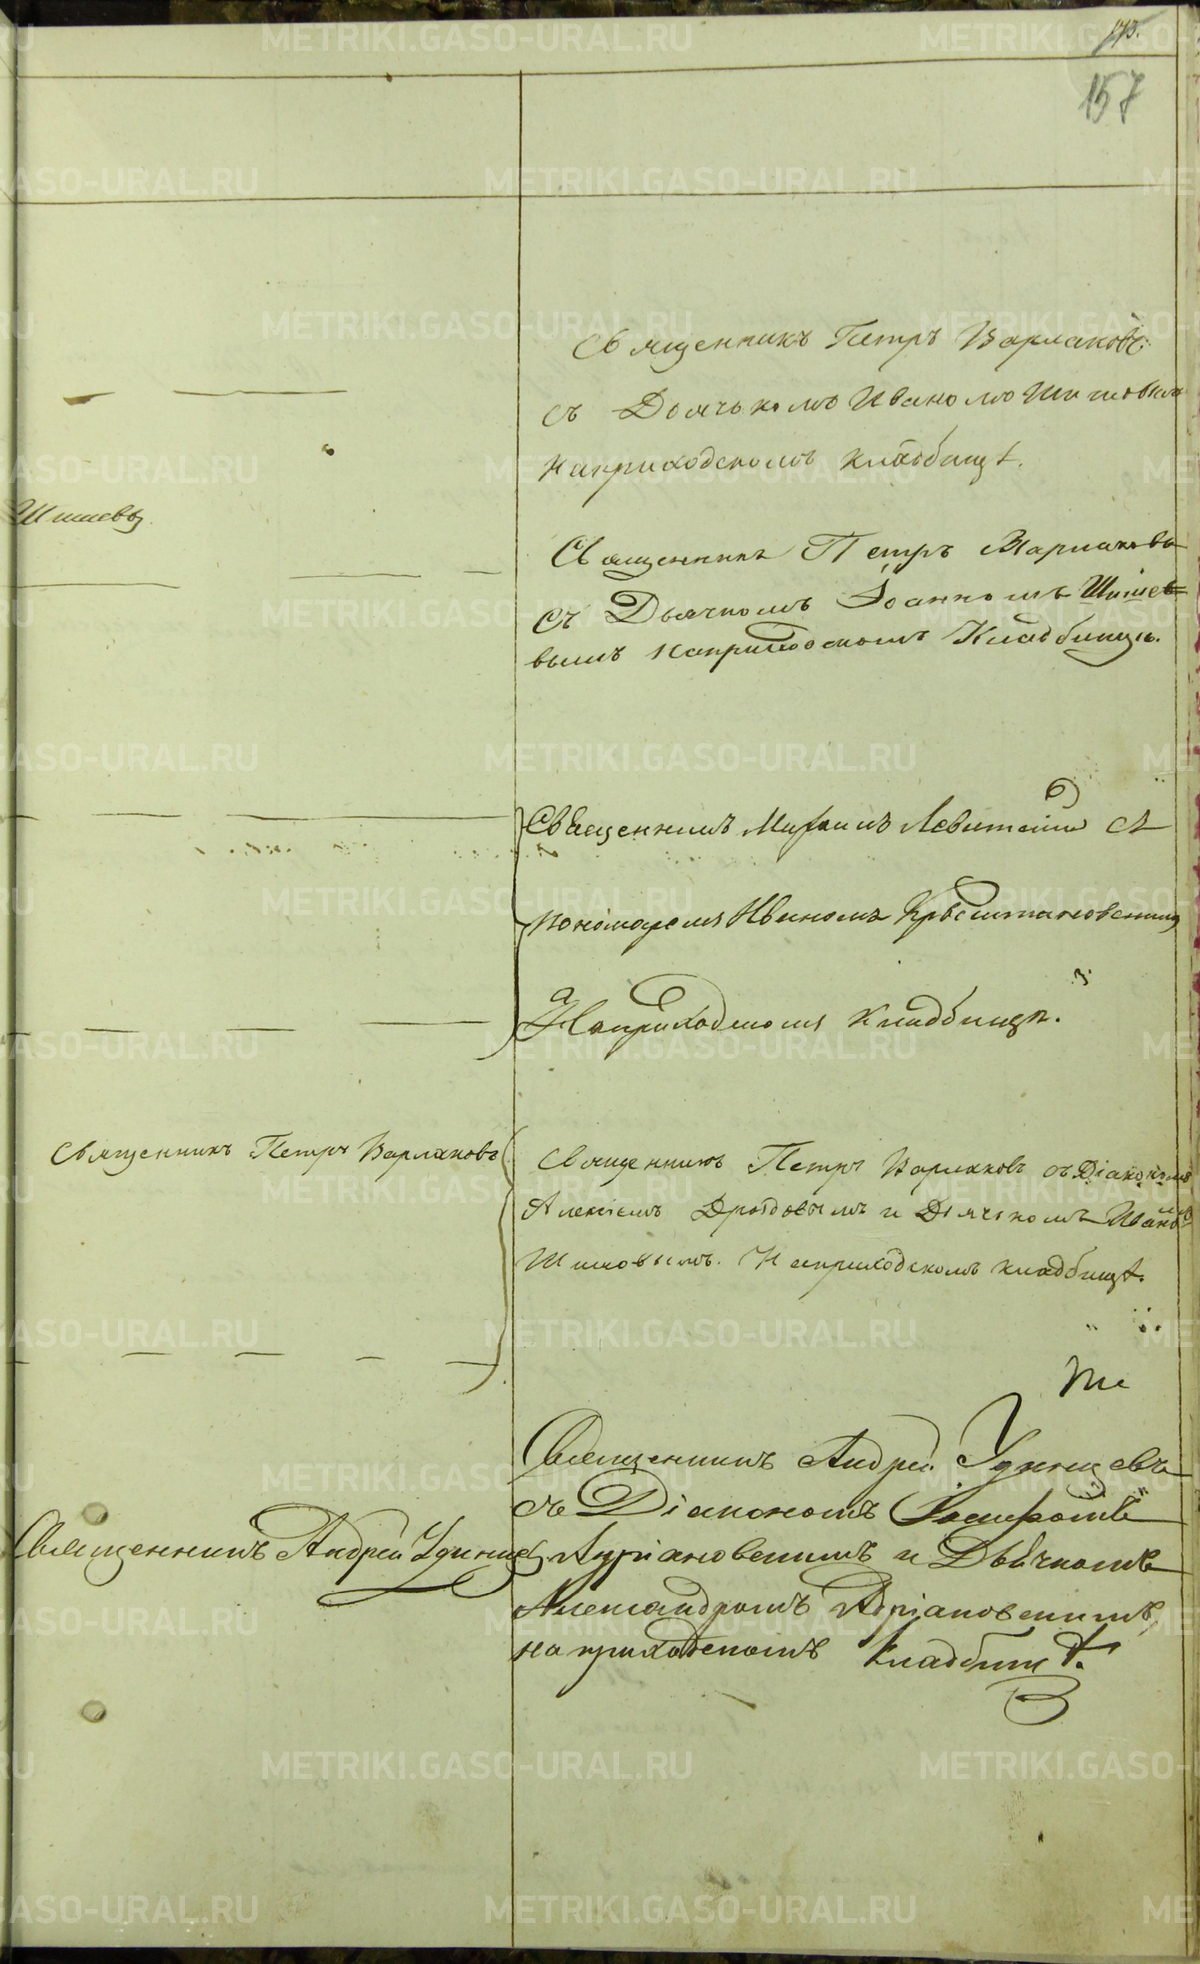 173.
157
Священникъ Петръ Варлаковъ
съ Дьячькомъ Иваномъ Шишовымъ
на приходскомъ кладбищѣ.
Шишевъ
Священникъ Петръ Варлаковъ
съ Дьячкомъ Іоанномъ Шише-
вымъ на приходскомъ Кладбищѣ.
Священникъ Михаилъ Левитскій съ
пономаремъ Иваномъ
На приходскомъ кладбищѣ.
Священникъ Петръ Варлаковъ
Священникъ Петръ Варлаковъ съ Діакономъ
Алексіемъ Дроздовымъ и Дьячкомъ Иваномъ
Шишовымъ. На приходскомъ кладбищѣ.
Священникъ Андрей Удинцевъ
съ Діакономъ
Священникъ Андрей Удинцевъ
Андріановскимъ и Дьячкомъ
Александромъ Адріановскимъ,
на приходскомъ кладбищѣ.
METRIKI.GASO-URAL.RU